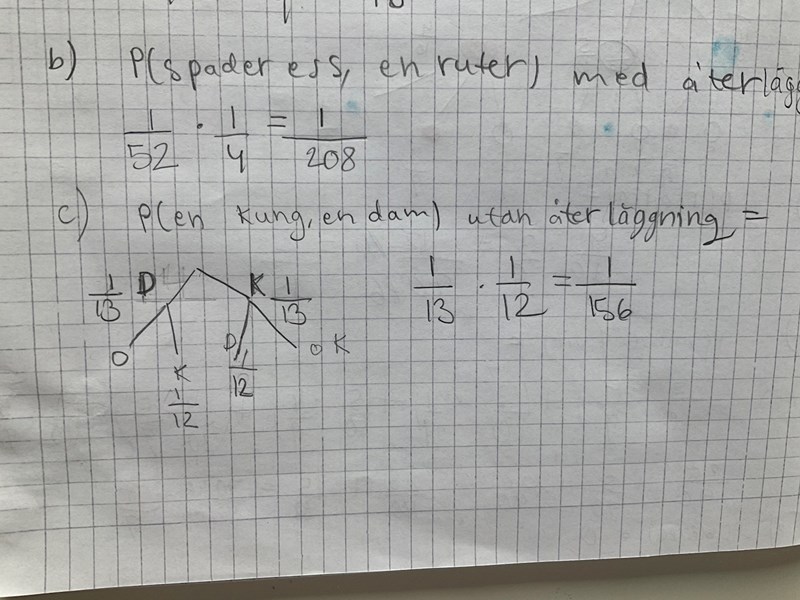 b) P(spader ess, en ruter) med återlägg
1/52 · 1/4 = 1/208
c) P(en kung, en dam) utan återläggning =
1/13 D K 1/13 1/13 · 1/12 = 1/156
O K 1/12 D 1/12 O K